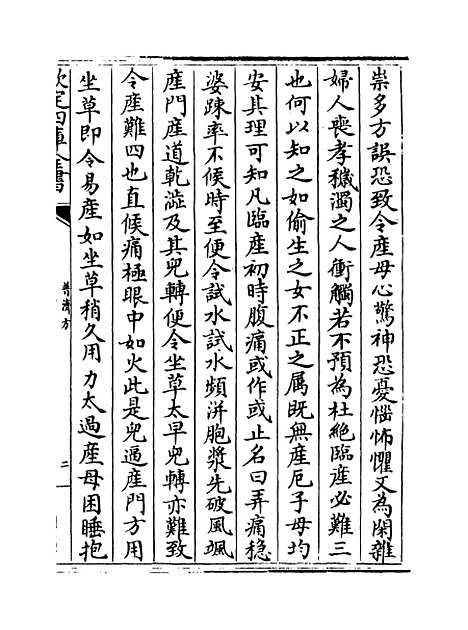 祟多方誤恐致令產母心驚神恐憂惱怖懼又為閑雜
婦人喪孝穢濁之人衝觸若不預為杜絶臨産必難三
也何以知之如偷生之女不正之属既無産厄子母均
安其理可知凡臨産初時腹痛或作或止名曰弄痛穏
婆踈率不候時至便令試水試水頻併胞漿先破風颯
産門產道乾澁及其兒轉便令坐草太早兒轉亦難致
令産難四也直候痛極眼中如火此是兒逼産門方用
坐草即令易產如坐草稍久用力太過産母困睡抱
欽定四庫全書
普濟方
二